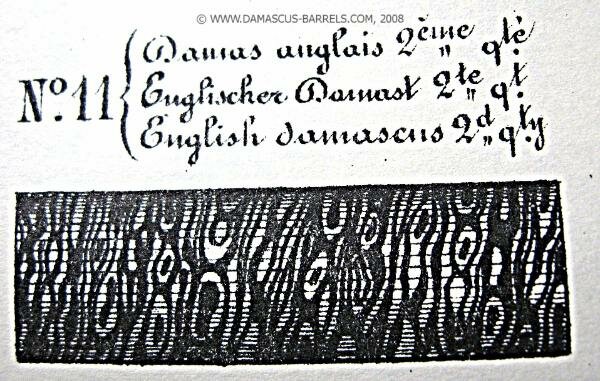 © WWW.DAMASCUS-BARRELS.COM, 2008
Damas anglais 2ème qté
No. 11 Englischer Damast 2te qt.
English damascus 2d qty